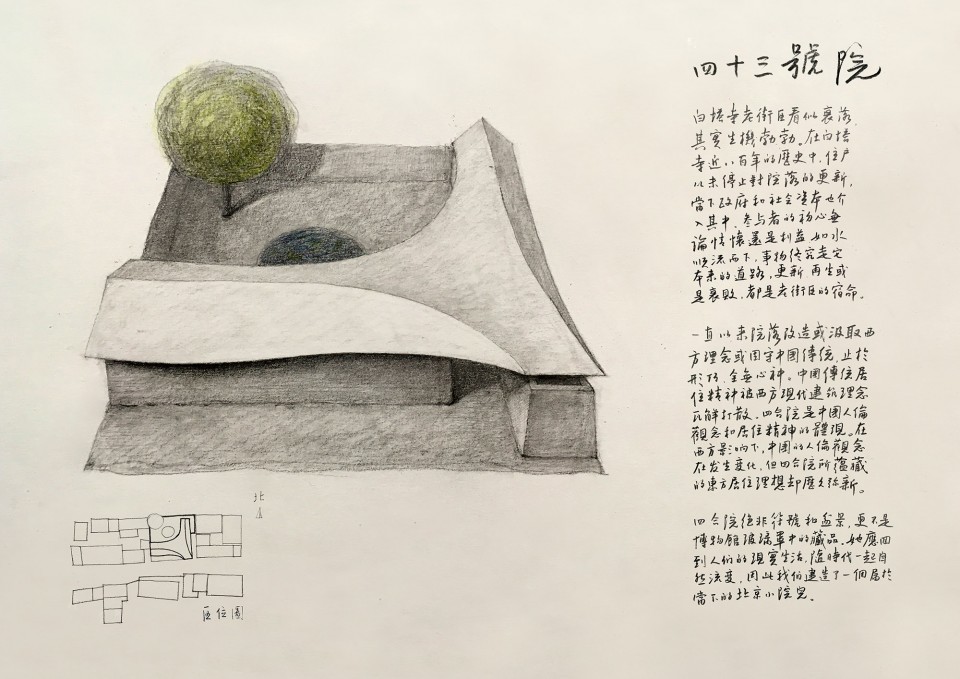 四十三號院
白塔寺老街區看似衰落,
其實生機勃勃。在白塔
寺近八百年的歷史中,住戶
從未停止對院落的更新,
當下政府和社會資本也介
入其中,參与者的初心無
論情懷還是利益,如水
順流而下,事物終究走向
本来的道路,更新、再生或
是衰敗,都是老街區的宿命。
一直以来院落改造或汲取西
方理念或固守中國傳統,止於
形巧,全無心神。中國傳統居
住精神被西方現代建築理念
瓦解打散。四合院是中國人倫
觀念和居住精神的體現。在
西方影响下,中國的人倫觀念
在发生變化,但四合院所蘊藏
的東方居住理想却歷久弥新。
四合院绝非符號和盆景,更不是
博物館玻璃罩中的藏品。她應回
到人们的現實生活,隨時代一起自
然演變,因此我们建造了一個屬於
當下的北京小院兒。
北
區位圖